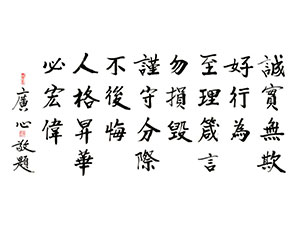 誠實無欺
好行為
至理箴言
勿損毀
謹守分際
不後悔
人格昇華
必宏偉
廣心敬題